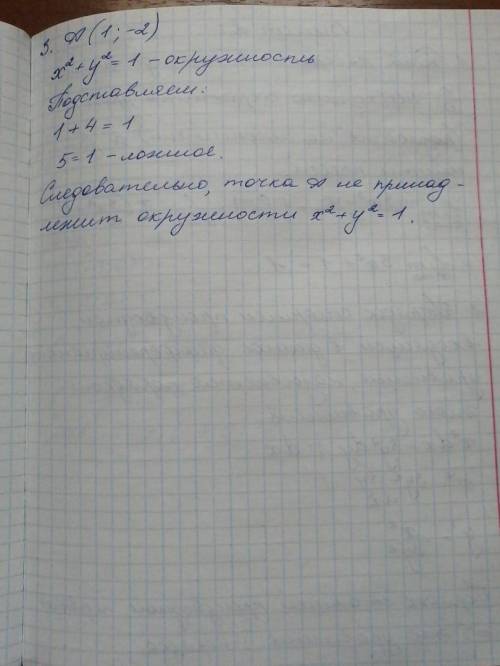 3. А(1;-2)
x²+y²=1 - окружность
Подставляем:
1+4=1
5=1 - ложное.
Следовательно, точка А не принад-
лежит окружности x²+y²=1.